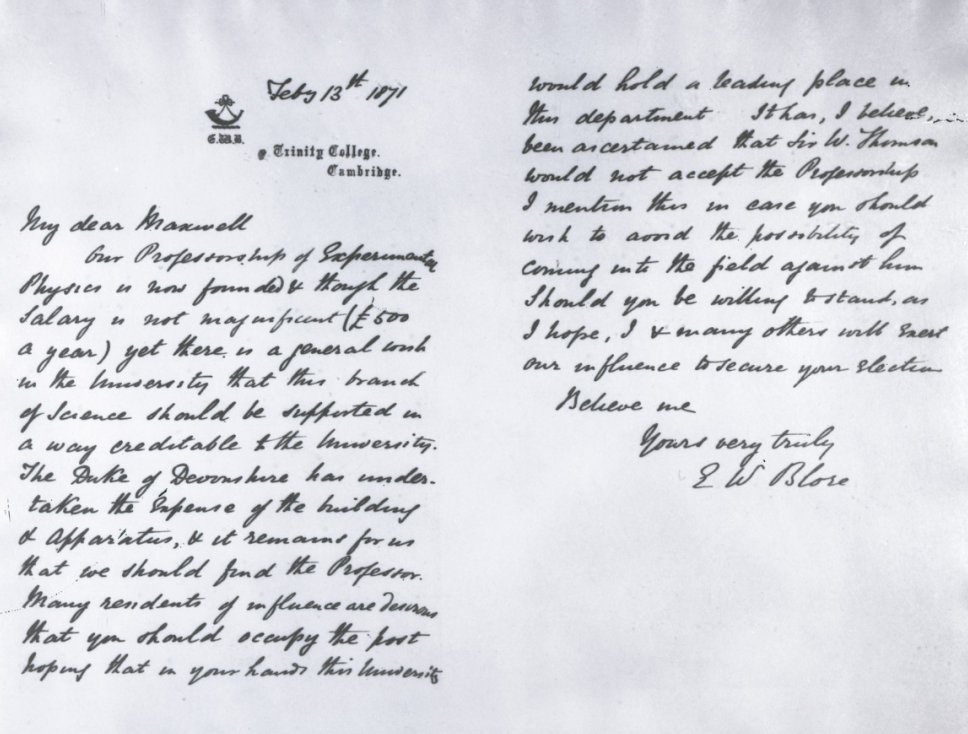 Feby 13th 1871
E.W.B.
Trinity College.
Cambridge.
My dear Maxwell
Our Professorship of Experimental
Physics is now founded & though the
Salary is not magnificent (£500
a year) yet there is a general wish
in the University that this branch
of Science should be supported in
a way creditable to the University.
The Duke of Devonshire has under-
taken the Expense of the building
& Apparatus, & it remains for us
that we should find the Professor.
Many residents of influence are desirous
that you should occupy the post
hoping that in your hands this University
would hold a leading place in
this department It has, I believe,
been ascertained that Sir W. Thomson
would not accept the Professorship
I mention this in case you should
wish to avoid the possibility of
coming into the field against him
Should you be willing to stand, as
I hope, I & many others will exert
our influence to secure your Election
Believe me
Yours very truly
E W Blore